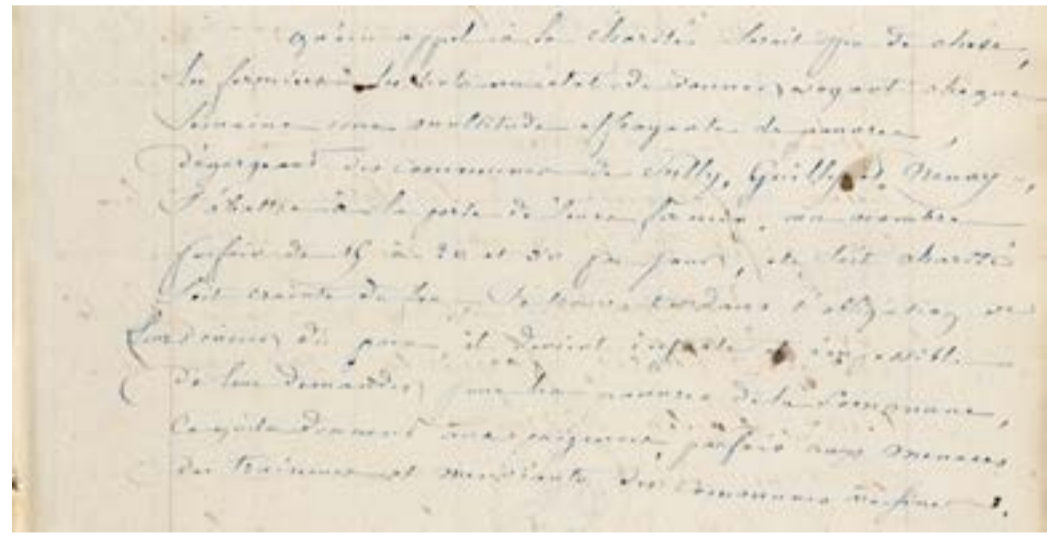 qu'un appel à la charité serait peu de chose,
les fermiers de donner, voyant chaque
semaine une multitude effrayante de pauvres
des communes de Sully, Guilly, & Neuvy,
s'abattre à la porte de leurs fermes, au nombre
parfois de 15 à 20 et 30 par jour, et soit charité
soit crainte de se trouver dans l'obligation de
leur donner du pain, il devient injuste et impossible
de leur demander pour les pauvres de la Commune,
ce qu'ils donnent aux exigences, parfois aux menaces
des et mendiants des communes voisines.